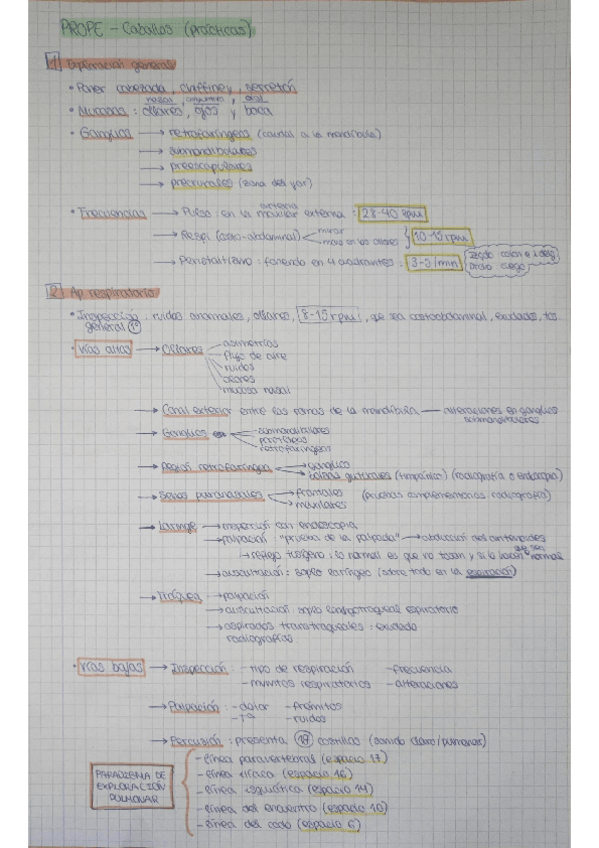 PROPE - Caballos (prácticas)
1 Exploración general
• Poner cabezada, chiffney, serretón
nasal, conjuntiva, oral
• Mucosas: ollares, ojos y boca
• Ganglios → retrofaríngeos (caudal a la mandíbula)
→ submandibulares
→ preescapulares
→ precrurales (zona del ijar)
arteria
• Frecuencias → Pulso: en la maxilar externa: 28-40 ppm
→ Resp. (costo-abdominal) mirar
mano en los ollares } 10-15 rpm
→ Peristaltismo: fonendo en 4 cuadrantes: 3-5/min
izqdo colon e ideg
drcho ciego
2 Ap respiratorio
• Inspección: ruidos anormales, ollares, 8-15 rpm, que sea costoabdominal, exudados, tos
general 1º
• Vías altas → Ollares asimetrías
flujo de aire
ruidos
olores
mucosa nasal
→ Canal exterior entre las ramas de la mandíbula — alteraciones en ganglios
submandibulares
→ Ganglios submandibulares
parotídeos
retrofaríngeos
→ Región retrofaríngea → ganglios
→ bolsas guturales (timpánico) (radiografía o endoscopia)
→ Senos paranasales frontales
maxilares (pruebas complementarias radiografía)
→ Laringe → inspección con endoscopia
→ palpación: "prueba de la palpada" → abducción del aritenoides
↳ reflejo tusígeno: lo normal es que no tosan y si lo hacen normal
→ auscultación: soplo laríngeo (sobre todo en la espiración)
→ Tráquea → palpación
→ auscultación: soplo laringotraqueal espiratorio
→ aspirados transtraqueales: exudado
radiografías
• Vías bajas → Inspección: - tipo de respiración - frecuencia
- mvtos respiratorios - alteraciones
→ Palpación: - dolor - frémitos
- Tª - ruidos
→ Percusión: presenta 17 costillas (sonido claro/pulmonar)
PARADIGMA DE
EXPLORACIÓN
PULMONAR
- línea paravertebral (espacio 17)
- línea ilíaca (espacio 16)
- línea isquiática (espacio 14)
- línea del encuentro (espacio 10)
- línea del codo (espacio 6)